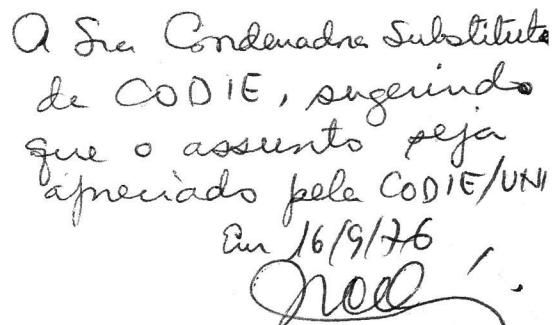 A Sra Coordenadora Substituta
da CODIE, sugerindo
que o assunto seja
apreciado pela CODIE/UNI
Em 16/9/76